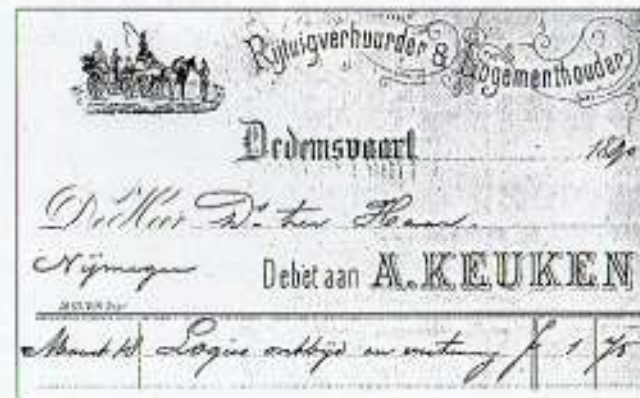 Rijtuigverhuurder & Logementhouder,
Dedemsvaart 1890
De Heer Dr. ter Haar.
Nijmegen Debet aan A. KEUKEN
Maart Logies ontbijt en vertering f 1 75